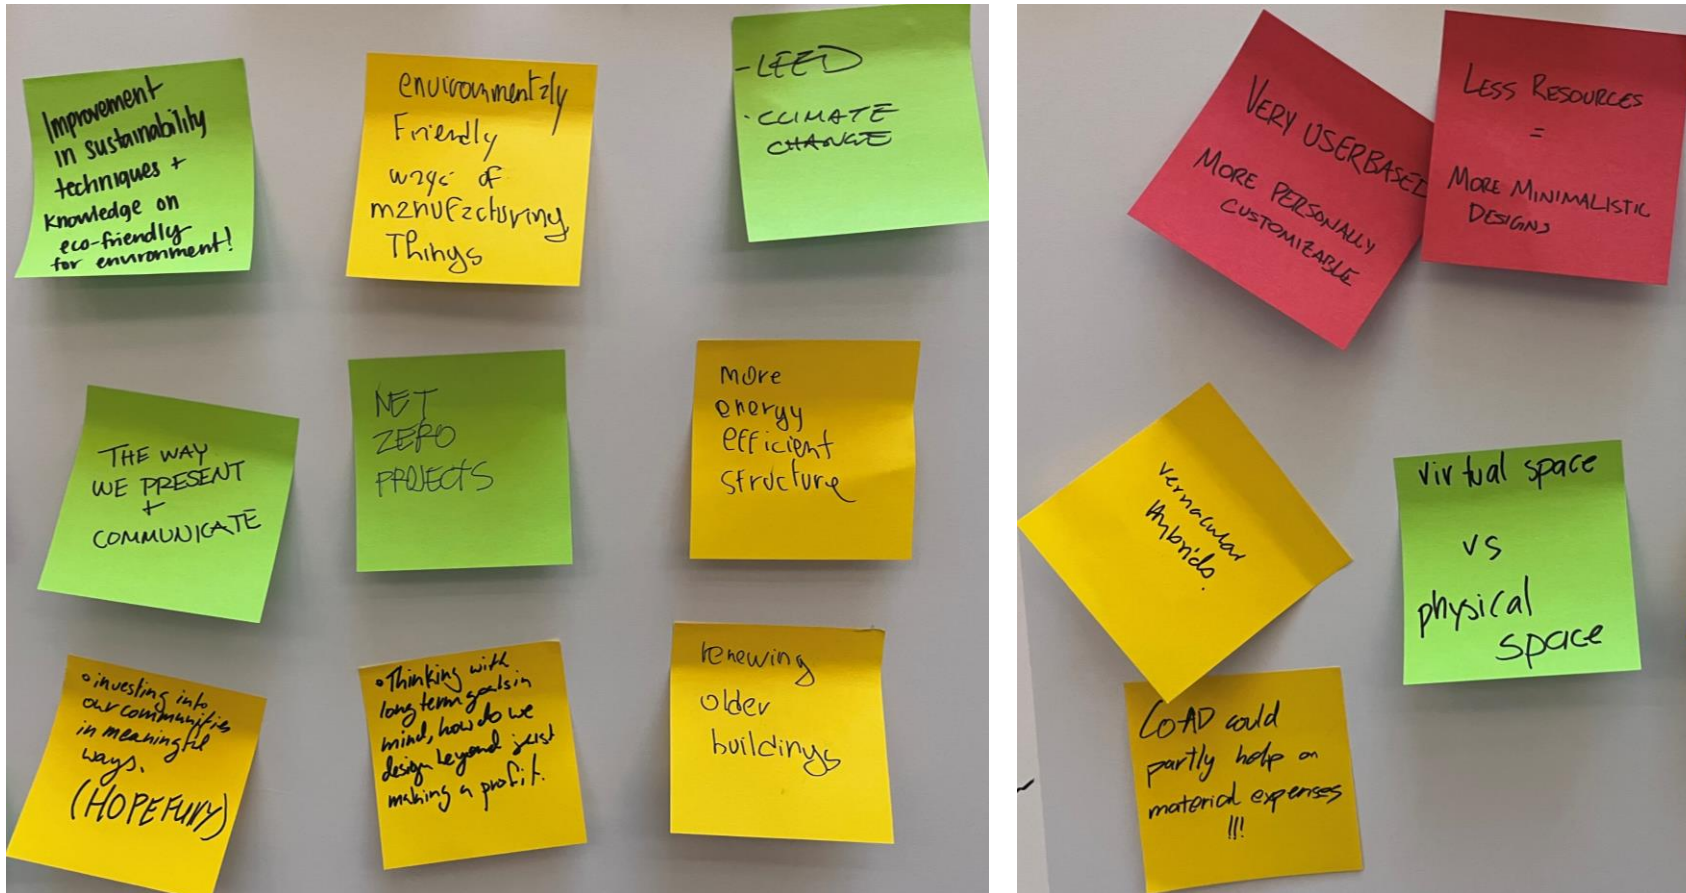 Improvement
in sustainability
techniques +
knowledge on
eco-friendly
for environment!
environmentaly
Friendly
ways of
manufacturing
Things
- LEED
- CLIMATE
CHANGE
THE WAY
WE PRESENT
+
COMMUNICATE
NET
ZERO
PROJECTS
more
energy
efficient
structure
• investing into
our communities
in meaningful
ways.
(HOPEFULLY)
• Thinking with
long term goals in
mind, how do we
design beyond just
making a profit.
renewing
older
buildings
VERY USERBASED
MORE PERSONALLY
CUSTOMIZABLE
LESS RESOURCES
=
MORE MINIMALISTIC
DESIGNS
vernacular
Hybrids.
virtual space
vs
physical
space
COAD could
partly help on
material expenses
!!!